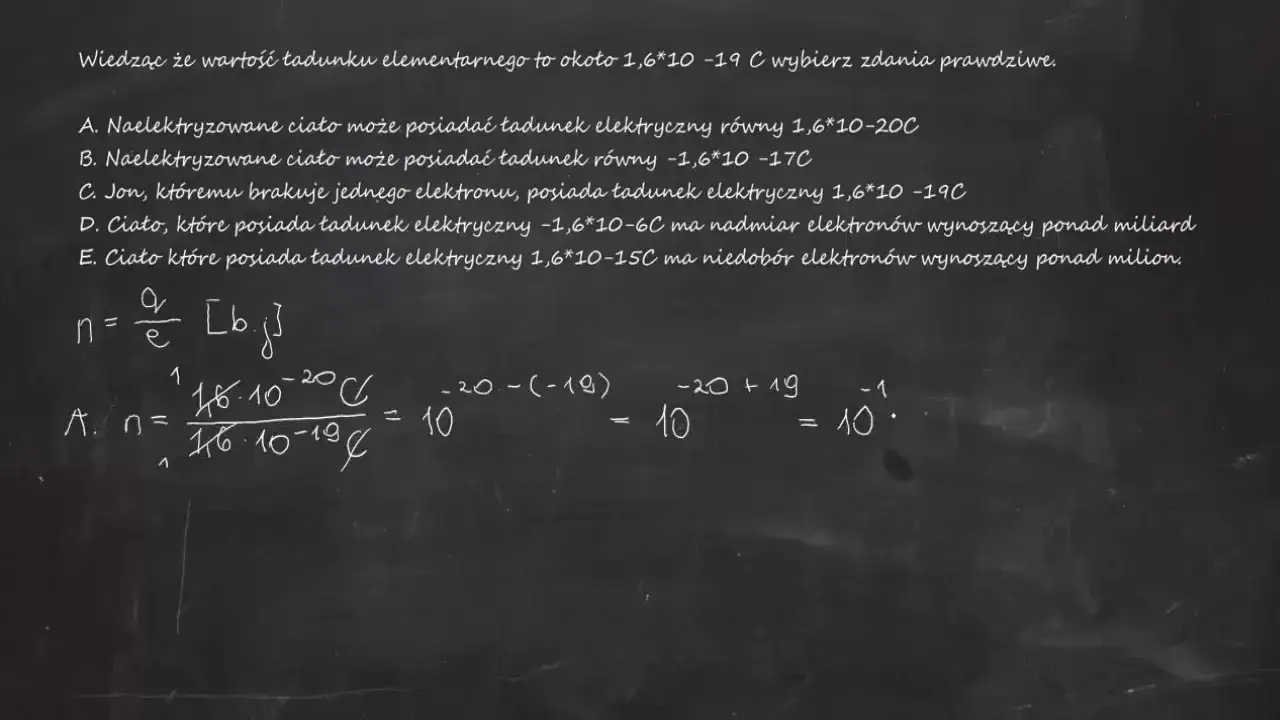 Wiedząc że wartość ładunku elementarnego to około 1,6*10 -19 C wybierz zdania prawdziwe.
A. Naelektryzowane ciało może posiadać ładunek elektryczny równy 1,6*10-20C
B. Naelektryzowane ciało może posiadać ładunek równy -1,6*10 -17C
C. Jon, któremu brakuje jednego elektronu, posiada ładunek elektryczny 1,6*10 -19C
D. Ciało, które posiada ładunek elektryczny -1,6*10-6C ma nadmiar elektronów wynoszący ponad miliard
E. Ciało które posiada ładunek elektryczny 1,6*10-15C ma niedobór elektronów wynoszący ponad milion.
n = q/e [b.j]
A. n = 1,6·10^-20 C / 1,6·10^-19 C = 10^-20-(-19) = 10^-20+19 = 10^-1 ·